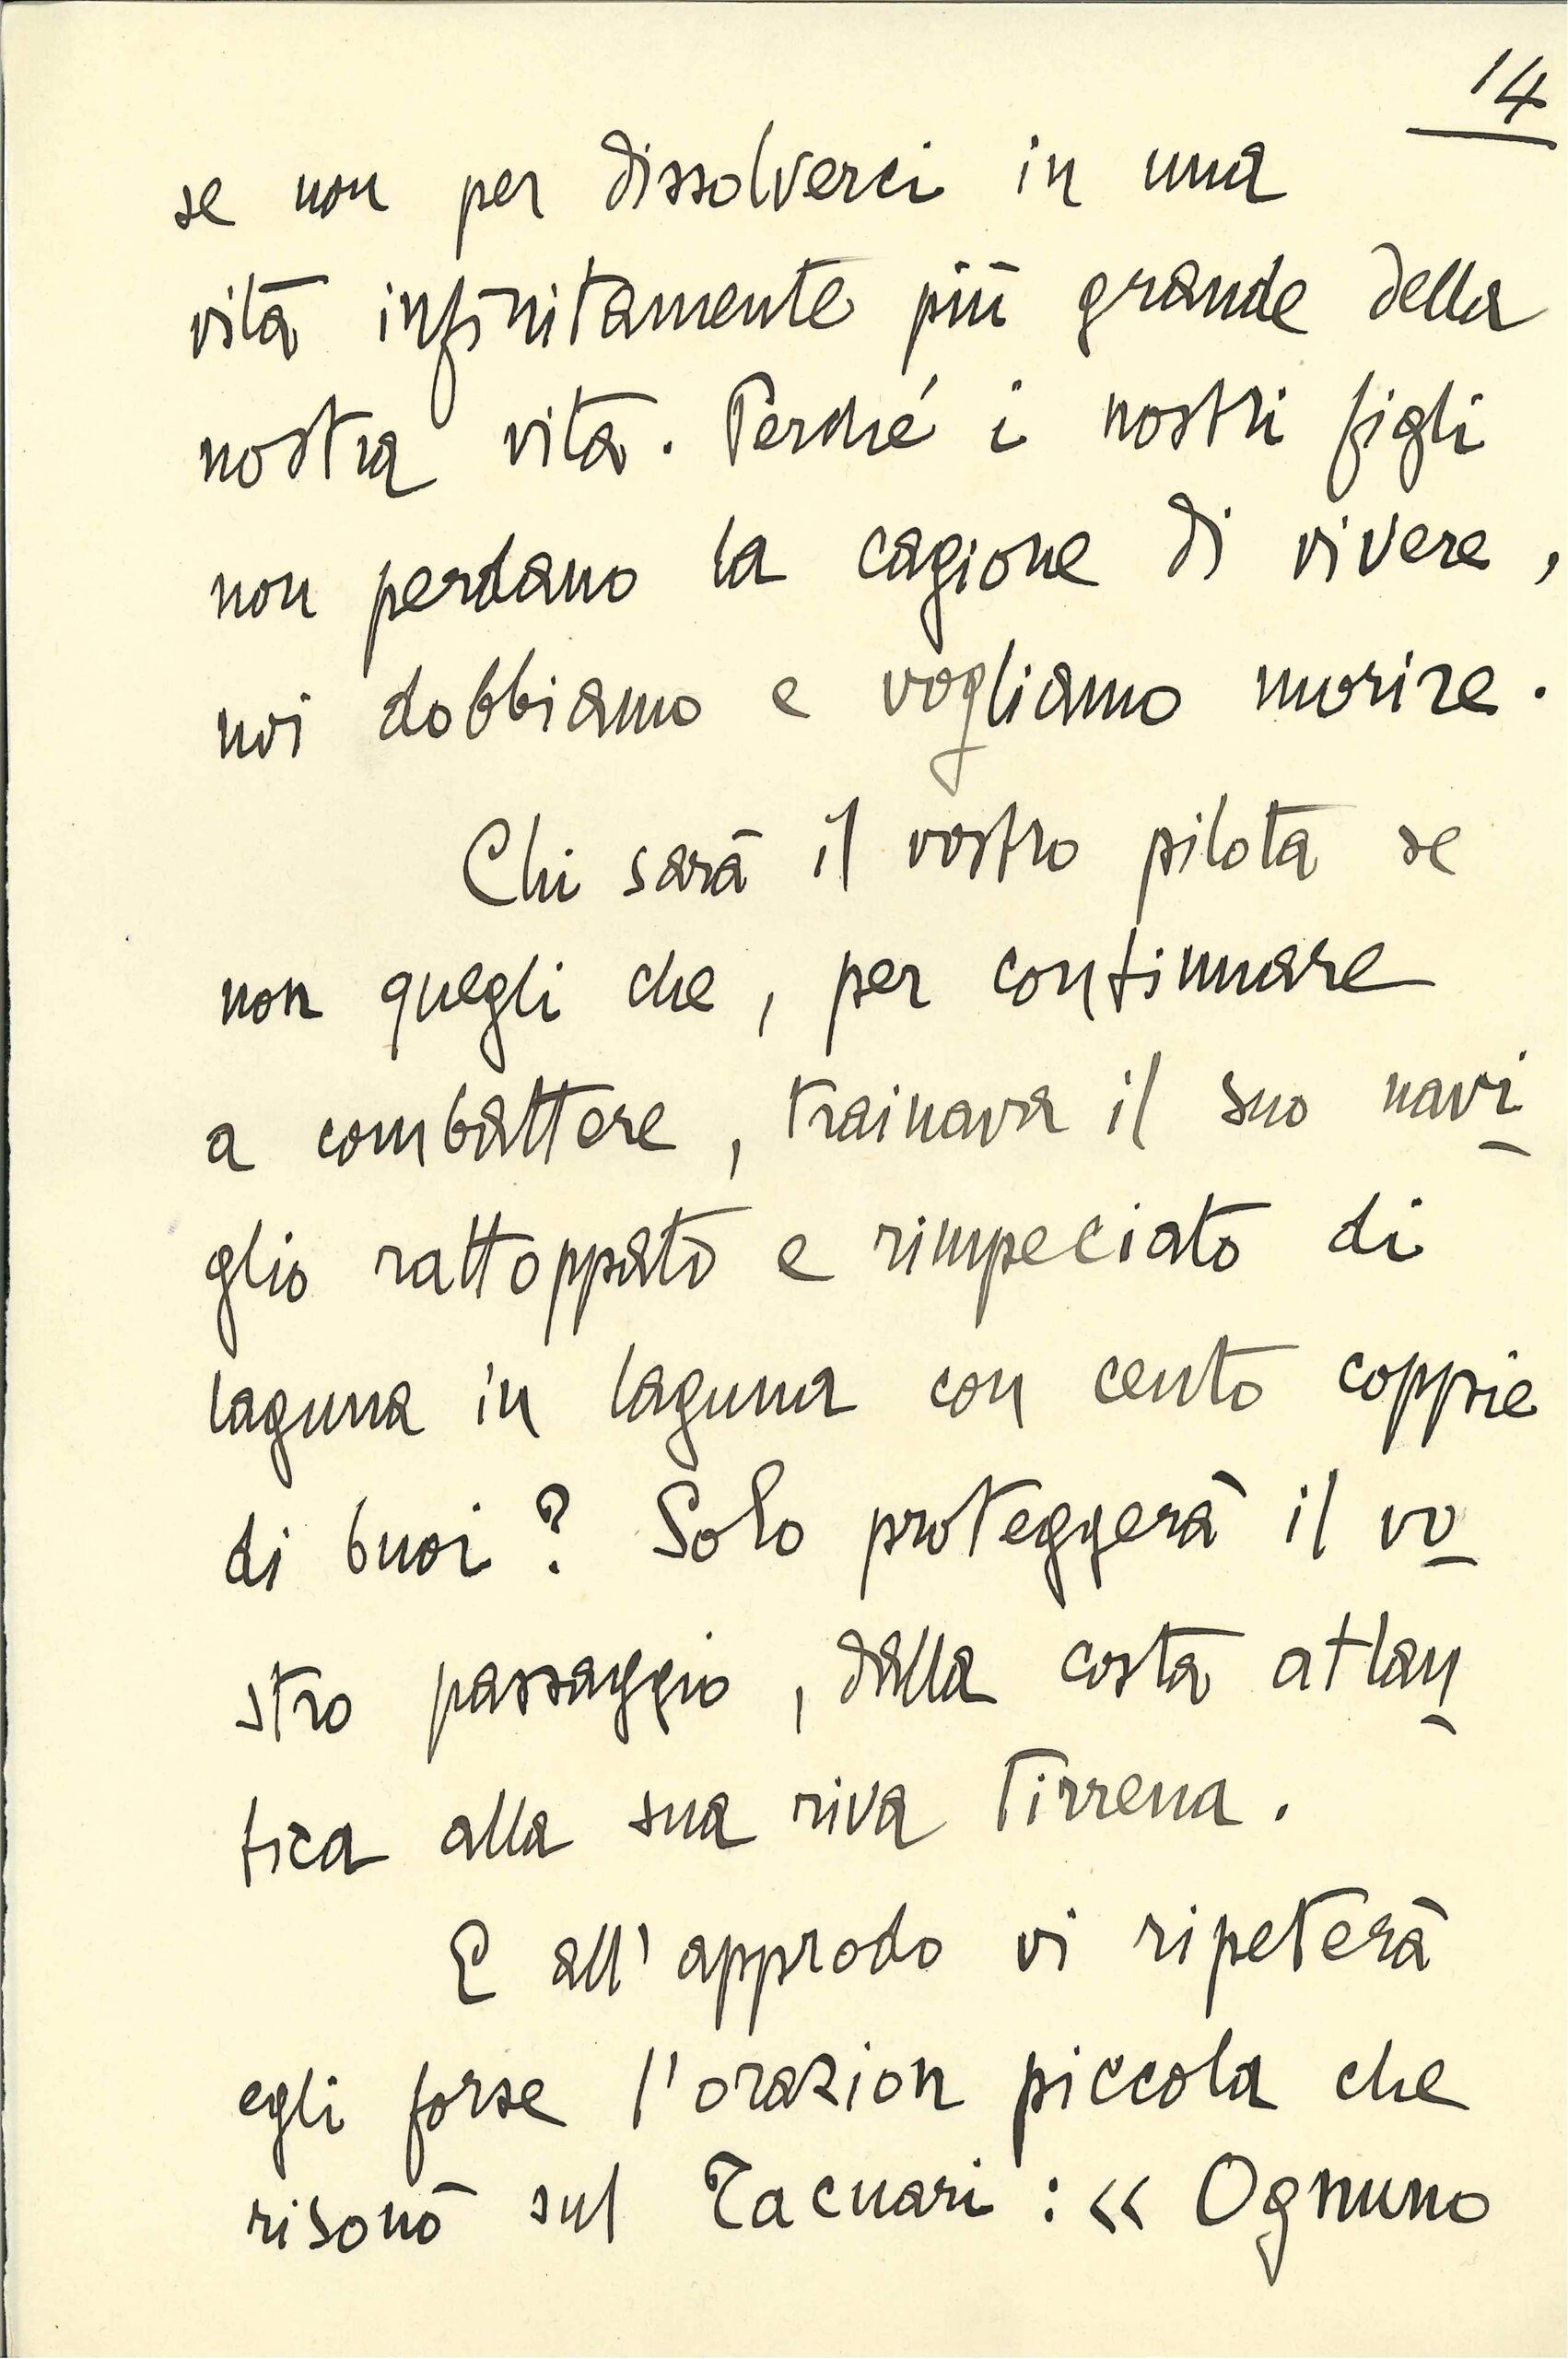 14
se non per dissolverci in una
vita infinitamente più grande della
nostra vita. Perché i nostri figli
non perdano la cagione di vivere,
noi dobbiamo e vogliamo morire.
Chi sarà il vostro pilota se
non quegli che, per continuare
a combattere, trainava il suo navi
glio rattoppato e rimpeciato di
laguna in laguna con cento coppie
di buoi? Solo proteggerà il vo
stro passaggio, dalla costa atlan
tica alla sua riva tirrena.
E all'approdo vi ripeterà
egli forse l'orazion piccola che
risonò sul Tacuari: « Ognuno